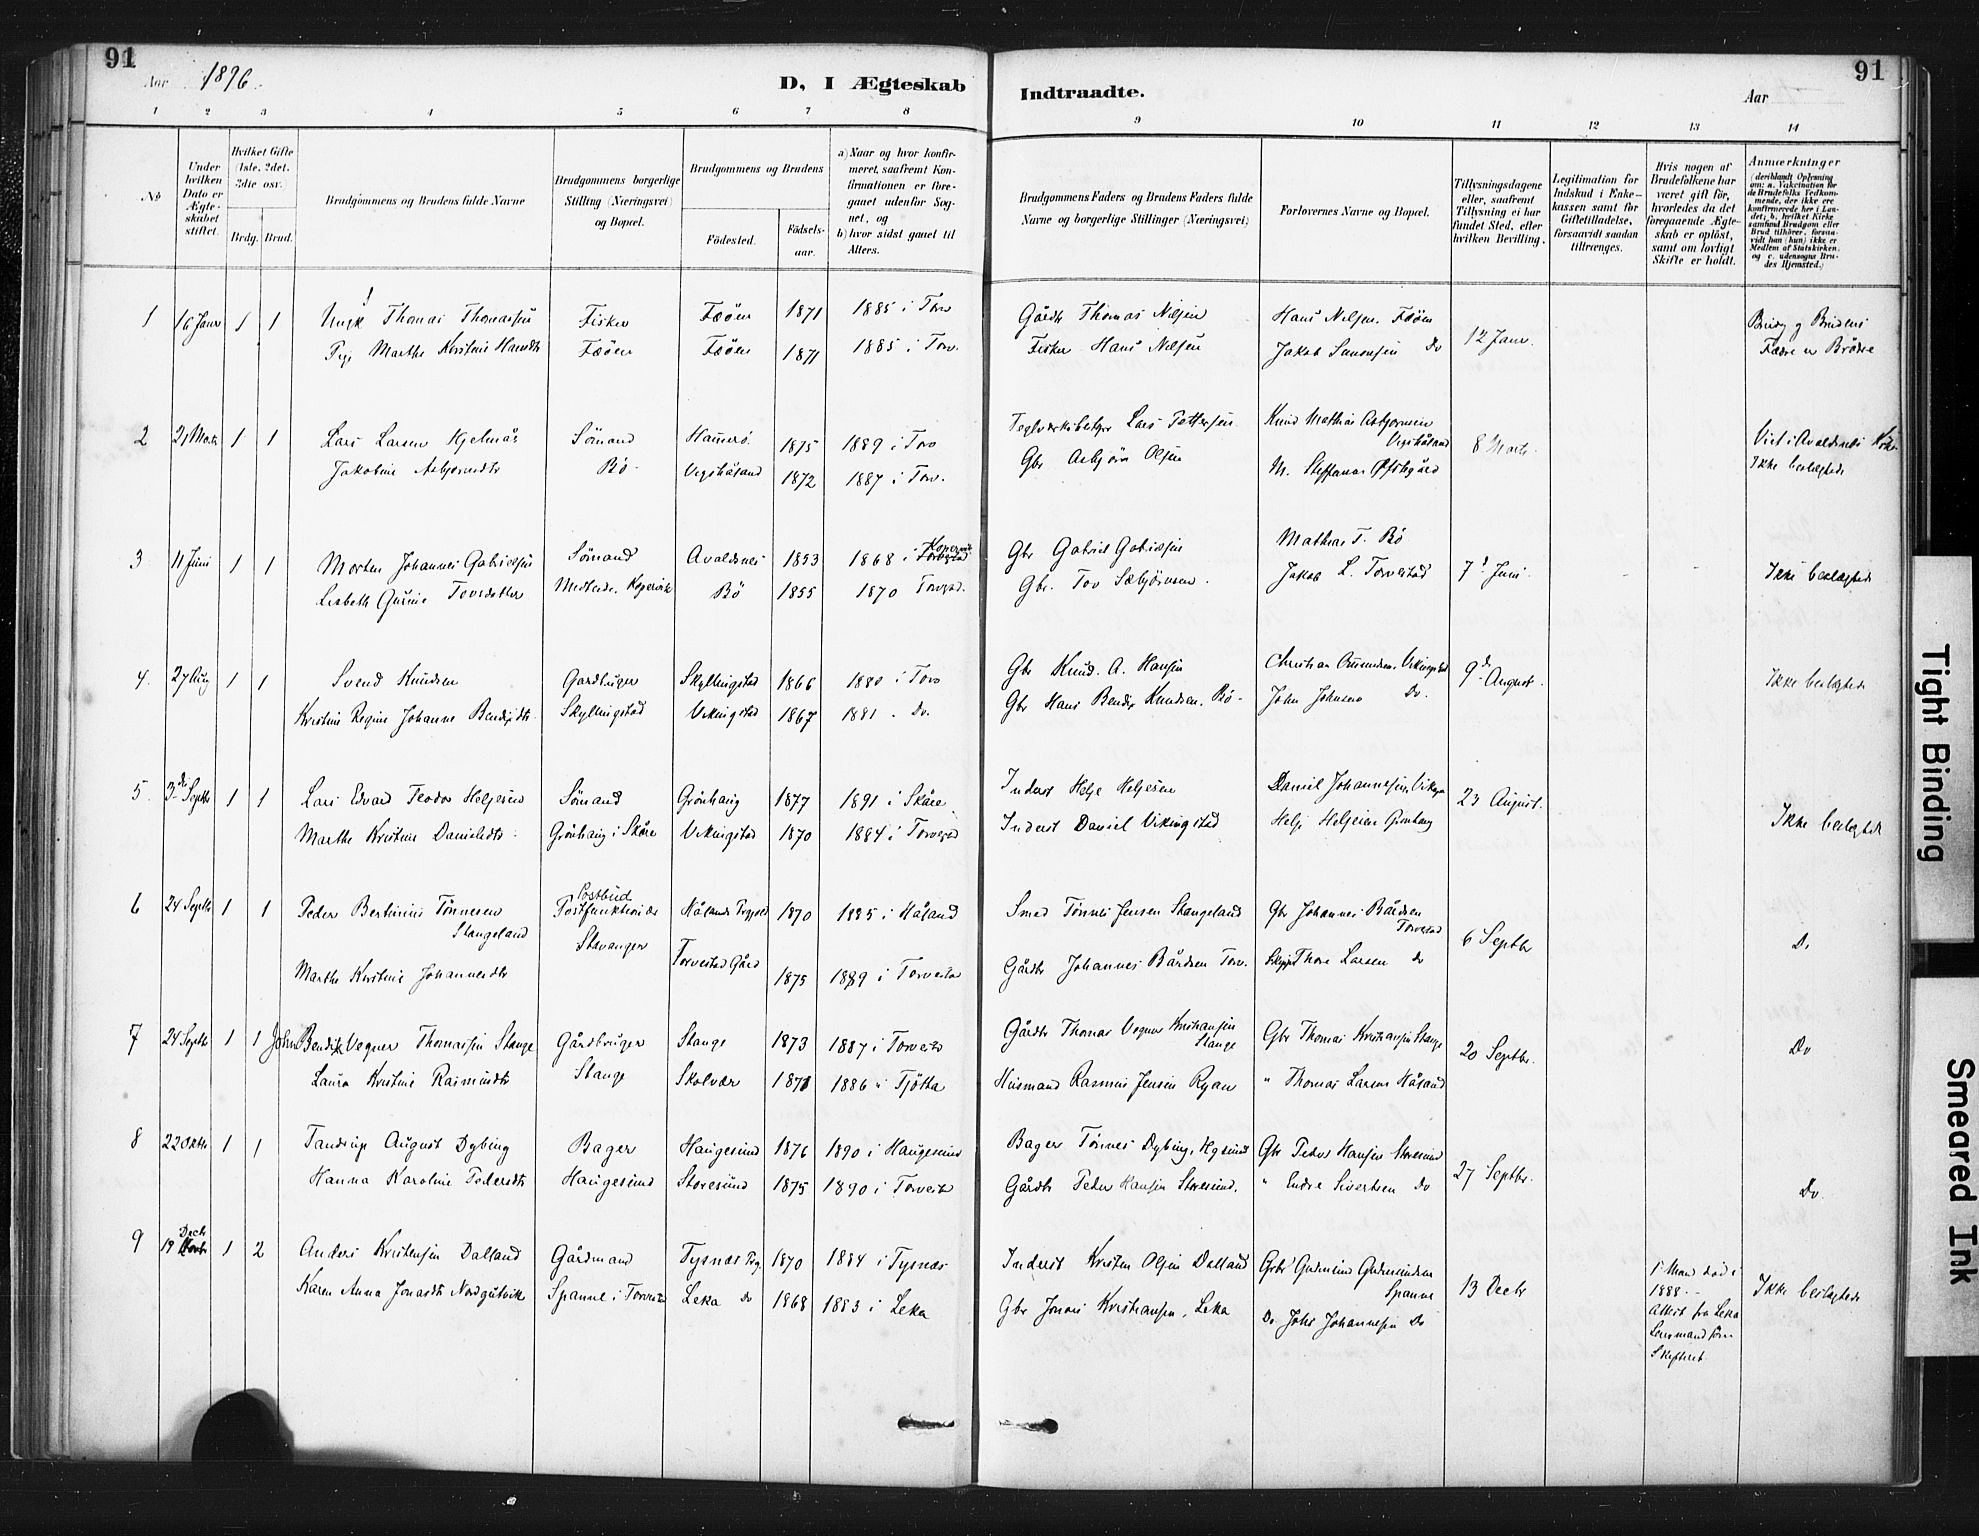 91
Aar 1896.
D, I Ægteskab Indtraadte.
91
Aar
1 2 3 4 5 6 7 8 9 10 11 12 13 14
No
Under hvilken Dato er Ægteskabet stiftet.
Hvilket Gifte (1ste, 2det, 3die osv.
Brdg. Brud.
Brudgommens og Brudens fulde Navne
Brudgommens borgerlige Stilling (Næringsvei) og Bopæl.
Brudgommens og Brudens
Fødested. Fødselsaar.
a) Naar og hvor konfirmeret, saafremt Konfirmationen er foregaaet udenfor Sognet, og
b) hvor sidst gaaet til Alters.
Brudgommens Faders og Brudens Faders fulde Navne og borgerlige Stillinger (Næringsvei)
Forlovernes Navne og Bopæl.
Tillysningsdagene eller, saafremt Tillysning ei har fundet Sted, efter hvilken Bevilling.
Legitimation for Indskud i Enkekassen samt for Giftetilladelse, forsaavidt saadan tiltrænges.
Hvis nogen af Brudefolkene har været gift før, hvorledes da det foregaaende Ægteskab er opløst, samt om lovligt Skifte er holdt.
Anmærkninger
(deriblandt Oplysning om: a. Vakcination for de Brudefolks Vedkommende, der ikke ere konfirmerede her i Landet; b. hvilket Kirkesamfund Brudgom eller Brud tilhører, forsaavidt han (hun) ikke er Medlem af Statskirken, og c. udensogns Brudes Hjemsted.)
1 16 Janr 1 1 Ungk Thomas Thomassen Fisker Fæøen 1871 1885 i Torv Gårdbr Thomas Nilsen Hans Nilsen. Fæøen 12 Janr. Brudg og Brudens
Pig Marthe Kristine Hansdtr Fæøen Fæøen 1871 1885 i Torv. Fisker Hans Nilsen Jakob Simonsen Do Fædre er Brødre
2 21 Marts 1 1 Lars Larsen Kjelmås Sømand Hamerø 1875 1889 i Torv Lars Pettersen Knud Mathias Asbjørnsen 8 Marts. Viet i Avaldsnes Kirke
Jakobine Asbjørnsdtr Bø. 1872 1887 i Torv. Gbr Asbjørn Olsen M. Steffensen Ikke beslægtede
3 11 Juni 1 1 Morten Johannes Gabrielsen Sømand Avaldsnes 1853 1868 i Kopervik Gbr Gabriel Gabrielsen Mathias T. Bø 7 Juni. Ikke beslægtede
Lisbeth Gurine Torsdatter Kopervik Bø 1855 1870 Torvestad. Gbr. Tov Sæbjørnsen. Jakob L. Torvestad
4. 27 Aug 1 1 Svend Knudsen Gardbruger Skyllingstad 1866 1880 i Torv Gbr Knud. A. Hansen Christian Vikingstad 9de August. Ikke beslægtede
Kristine Regine Johanne Bendixdtr. Skyllingstad Vikingstad 1867 1881. Do. Gbr Hans Bendix Knudsen. Bø John Johnsen Do.
5. 3de Septbr 1 1 Lars Edvard Teodor Heljesen Sømand Grønhaug 1877 1891 i Skåre. Inderst Helje Heljesen Daniel Johannesen, 23 August. Ikke beslægtede
Marthe Kristine Danielsdtr. Grønhaug i Skåre Vikingstad 1870 1884 i Torvestad Inderst Daniel Vikingstad Helje Heljesen Grønhaug
6 24 Septbr 1 1 Peder Bertinius Tønnesen Stangeland Postbud Postfunktionær Håland 1870 1885 i Håland Smed Tønnes Jensen Stangeland Gbr Johannes Bårdsen Torvestad 6 Septbr Do
Marthe Kristine Johannesdtr Stavanger Torvestad Gård 1875 1889 i Torvestad Gårdbr Johannes Bårdsen Torv. Skipper Thore Larsen do
7 24 Septbr 1 1 John Bendik Vegner Thomassen Stange Gårdbruger Stange 1873 1887 i Torvestad Gårdbr Thomas Vegner Kristiansen Stange Gbr Thomas Kristiansen Stange 20 Septbr. Do
Laura Kristine Rasmusdtr Stange Skolvær 1871 1886 i Tjøtta Husmand Rasmus Jensen Ryan " Thomas Larsen Håland
8 22 Oktbr 1 1 Tandrup August Dybing Bager Haugesund 1876 1890 i Haugesund Bager Tønnes Dybing, Hgsund Gbr Peder Hansen Storesund 27 Septbr. Do
Hanna Karoline Pedersdtr Haugesund Storesund 1875 1890 i Torvestad Gårdbr Peder Hansen Storesund. " Endre Sivertsen Do
9 19 Decbr 1 2 Anders Kristensen Dalland Gårdmand Tysnæs Prg. 1870 1884 i Tysnæs Inderst Kristen Olsen Dalland Grbr Gudmund Gudmundsen Spanne 13 Decbr 1. Mand død i 1888. Attest fra Leka Lensmand Skifteret. Ikke beslægtede
Karen Anna Jonasdtr Nordgutvik Spanne i Torvestad Leka do 1868 1883 i Leka Gbr Jonas Kristiansen, Leka Do Johs Johannesen Do
Tight Binding
Smeared Ink